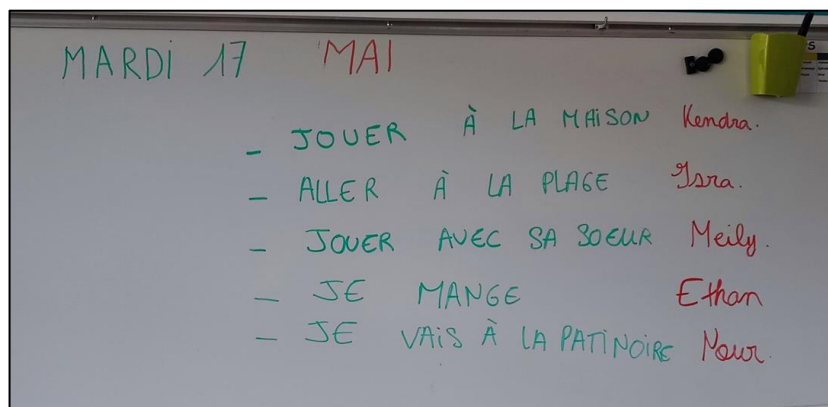 MARDI 17 MAI
- JOUER À LA MAISON Kendra.
- ALLER À LA PLAGE Isra.
- JOUER AVEC SA SOEUR Meily.
- JE MANGE Ethan
- JE VAIS À LA PATINOIRE Nour.